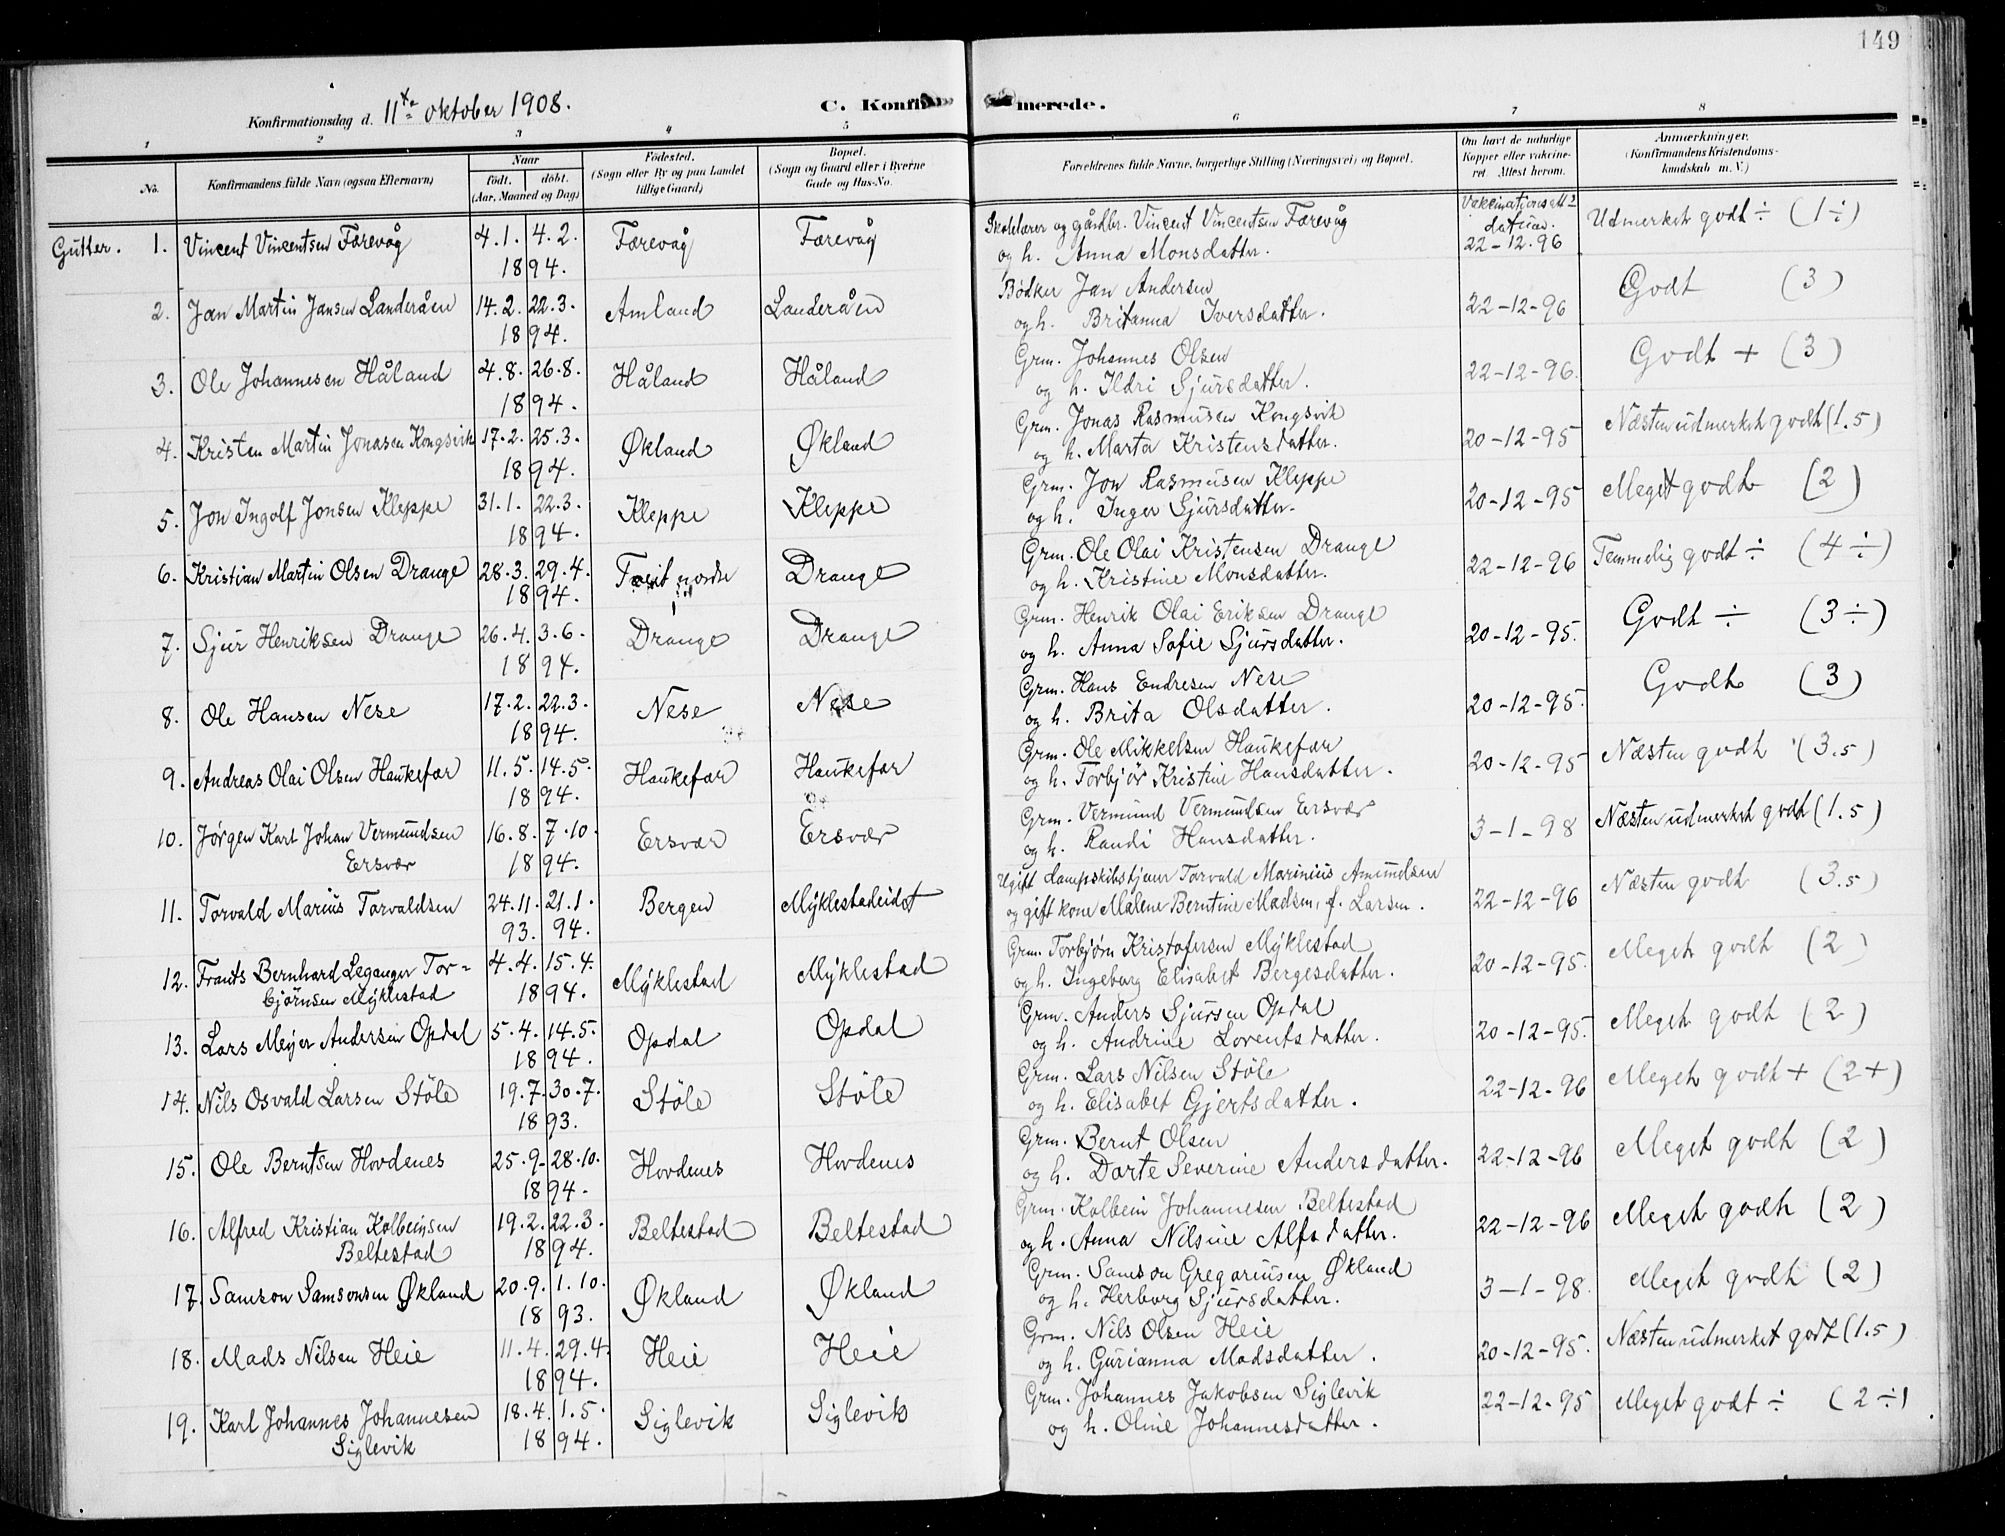 149
Konfirmationsdag d. 11te oktober 1908.
C. Konfir merede.
1 2 3 4 5 6 7 8
No.
Konfirmandens fulde Navn (ogsaa Efternavn)
Naar
födt. döbt.
(Aar, Maaned og Dag)
Födested.
(Sogn eller By og paa Landet
tillige Gaard)
Bopæl.
(Sogn og Gaard eller i Byerne
Gade og Hus-No.
Forældrenes fulde Navne, borgerlige Stilling (Næringsvei) og Bopæl.
Om havt de naturlige
Kopper eller vakcine-
ret Attest herom.
Anmærkninger.
(Konfirmandens Kristendoms-
kundskab m. V.)
Gutter. 1. Vincent Vincentsen Færevåg 4.1. 4.2. 1894. Færevåg Færevåg
Skolelærer og gårdbr. Vincent Vincentsen Færevåg
og h. Anna Monsdatter.
Vakcinationsatt.
datum.
22-12-96
Udmerket godt ÷ (1÷)
2. Jan Martin Jansen Landeråen 14.2. 22.3. 1894. Amland Landeråen
Bødker Jan Andersen
og h. Britanna Iversdatter.
22-12-96 Godt (3)
3. Ole Johannesen Håland 4.8. 26.8. 1894. Håland Håland
Grm. Johannes Olsen
og h. Ildri Sjursdatter.
22-12-96. Godt + (3)
4. Kristen Martin Jonasen Kongsvik 17.2. 25.3. 1894. Økland Økland
Grm. Jonas Rasmusen Kongsvik
og h. Marta Kristensdatter.
20-12-95 Næsten udmerket godt (1.5)
5. Jon Ingolf Jonsen Kleppe 31.1. 22.3. 1894. Kleppe Kleppe
Grm. Jon Rasmusen Kleppe
og h. Inger Sjursdatter.
20-12-95 Meget godt (2)
6. Kristian Martin Olsen Drange 28.3. 29.4. 1894. nordre Drange
Grm. Ole Olai Kristensen Drange
og h. Kristine Monsdatter.
22-12-96 Temmelig godt ÷ (4÷)
7. Sjur Henriksen Drange 26.4. 3.6. 1894. Drange Drange
Grm. Henrik Olai Eriksen Drange
og h. Anna Sofie Sjursdatter.
20-12-95. Godt ÷ (3÷)
8. Ole Hansen Nese 17.2. 22.3. 1894. Nese Nese
Grm. Hans Endresen Nese
og h. Brita Olsdatter.
20-12-95. Godt (3)
9. Andreas Olai Olsen Haukefær 11.5. 14.5. 1894. Haukefær Haukefær
Grm. Ole Mikkelsen Haukefær
og h. Torbjør Kristine Hansdatter.
20-12-95 Næsten godt (3.5)
10. Jørgen Karl Johan Vermundsen
Ersvær 16.8. 7.10. 1894. Ersvær Ersvær
Grm. Vermund Vermundsen Ersvær
og h. Randi Hansdatter.
3-1-98 Næsten udmerket godt (1.5)
11. Torvald Marius Torvaldsen 24.11. 93. 21.1. 94. Bergen Myklestadeidet
Ugift dampskibstjener Torvald Marinius Amundsen
og gift kone Malene Berntine Madsen, f. Larsen.
22-12-96 Næsten godt (3.5)
12. Frants Bernhard Leganger Tor-
bjørnsen Myklestad 4.4. 15.4. 1894. Myklestad Myklestad
Grm. Torbjørn Kristofersen Myklestad
og h. Ingeborg Elisabet Bergesdatter.
20-12-95. Meget godt (2)
13. Lars Meyer Andersen Opdal 5.4. 14.5. 1894. Opdal Opdal
Grm. Anders Sjursen Opdal
og h. Andrine Lorentsdatter.
20-12-95. Meget godt (2)
14. Nils Osvald Larsen Støle 19.7. 30.7. 1893. Støle Støle
Grm. Lars Nilsen Støle
og h. Elisabet Gjertsdatter.
22-12-96 Meget godt + (2+)
15. Ole Berntsen Hovdenes 25.9. 28.10. 1894. Hovdenes Hovdenes
Grm. Bernt Olsen
og h. Dorte Severine Andersdatter.
22-12-96 Meget godt (2)
16. Alfred Kristian Kolbeinsen
Beltestad 19.2. 22.3. 1894. Beltestad Beltestad
Grm. Kolbein Johannesen Beltestad
og h. Anna Nilsine Alfsdatter.
22-12-96 Meget godt (2)
17. Samson Samsonsen Økland 20.9. 1.10. 1893. Økland Økland
Grm. Samson Gregoriusen Økland
og h. Herborg Sjursdatter.
3-1-98. Meget godt (2)
18. Mads Nilsen Heie 11.4. 29.4. 1894. Heie Heie
Grm. Nils Olsen Heie
og h. Gurianna Madsdatter.
20-12-95. Næsten udmerket godt (1.5)
19. Karl Johannes Johannesen
Siglevik 18.4. 1.5. 1894. Siglevik Siglevik
Grm. Johannes Jakobsen Siglevik
og h. Oline Johannesdatter.
22-12-95 Meget godt ÷ (2÷)